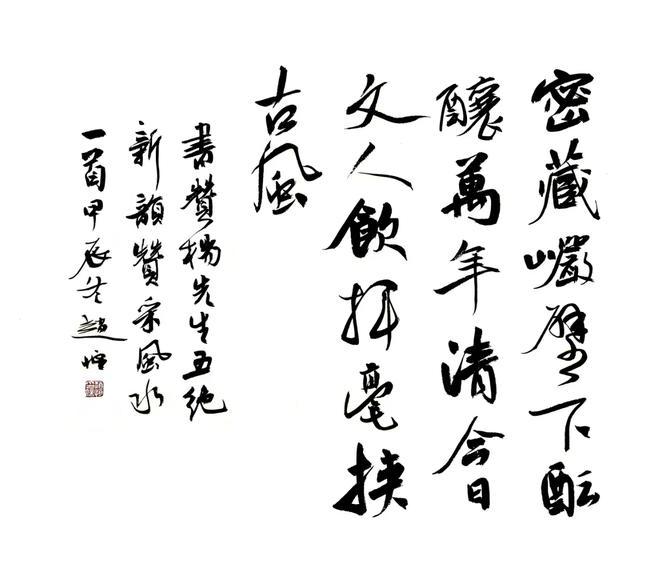 密藏巖壁下酝
釀萬年清今日
文人飲挥毫挟
古風
書贊楊先生五绝
新韻贊采風水
一首甲辰冬趙